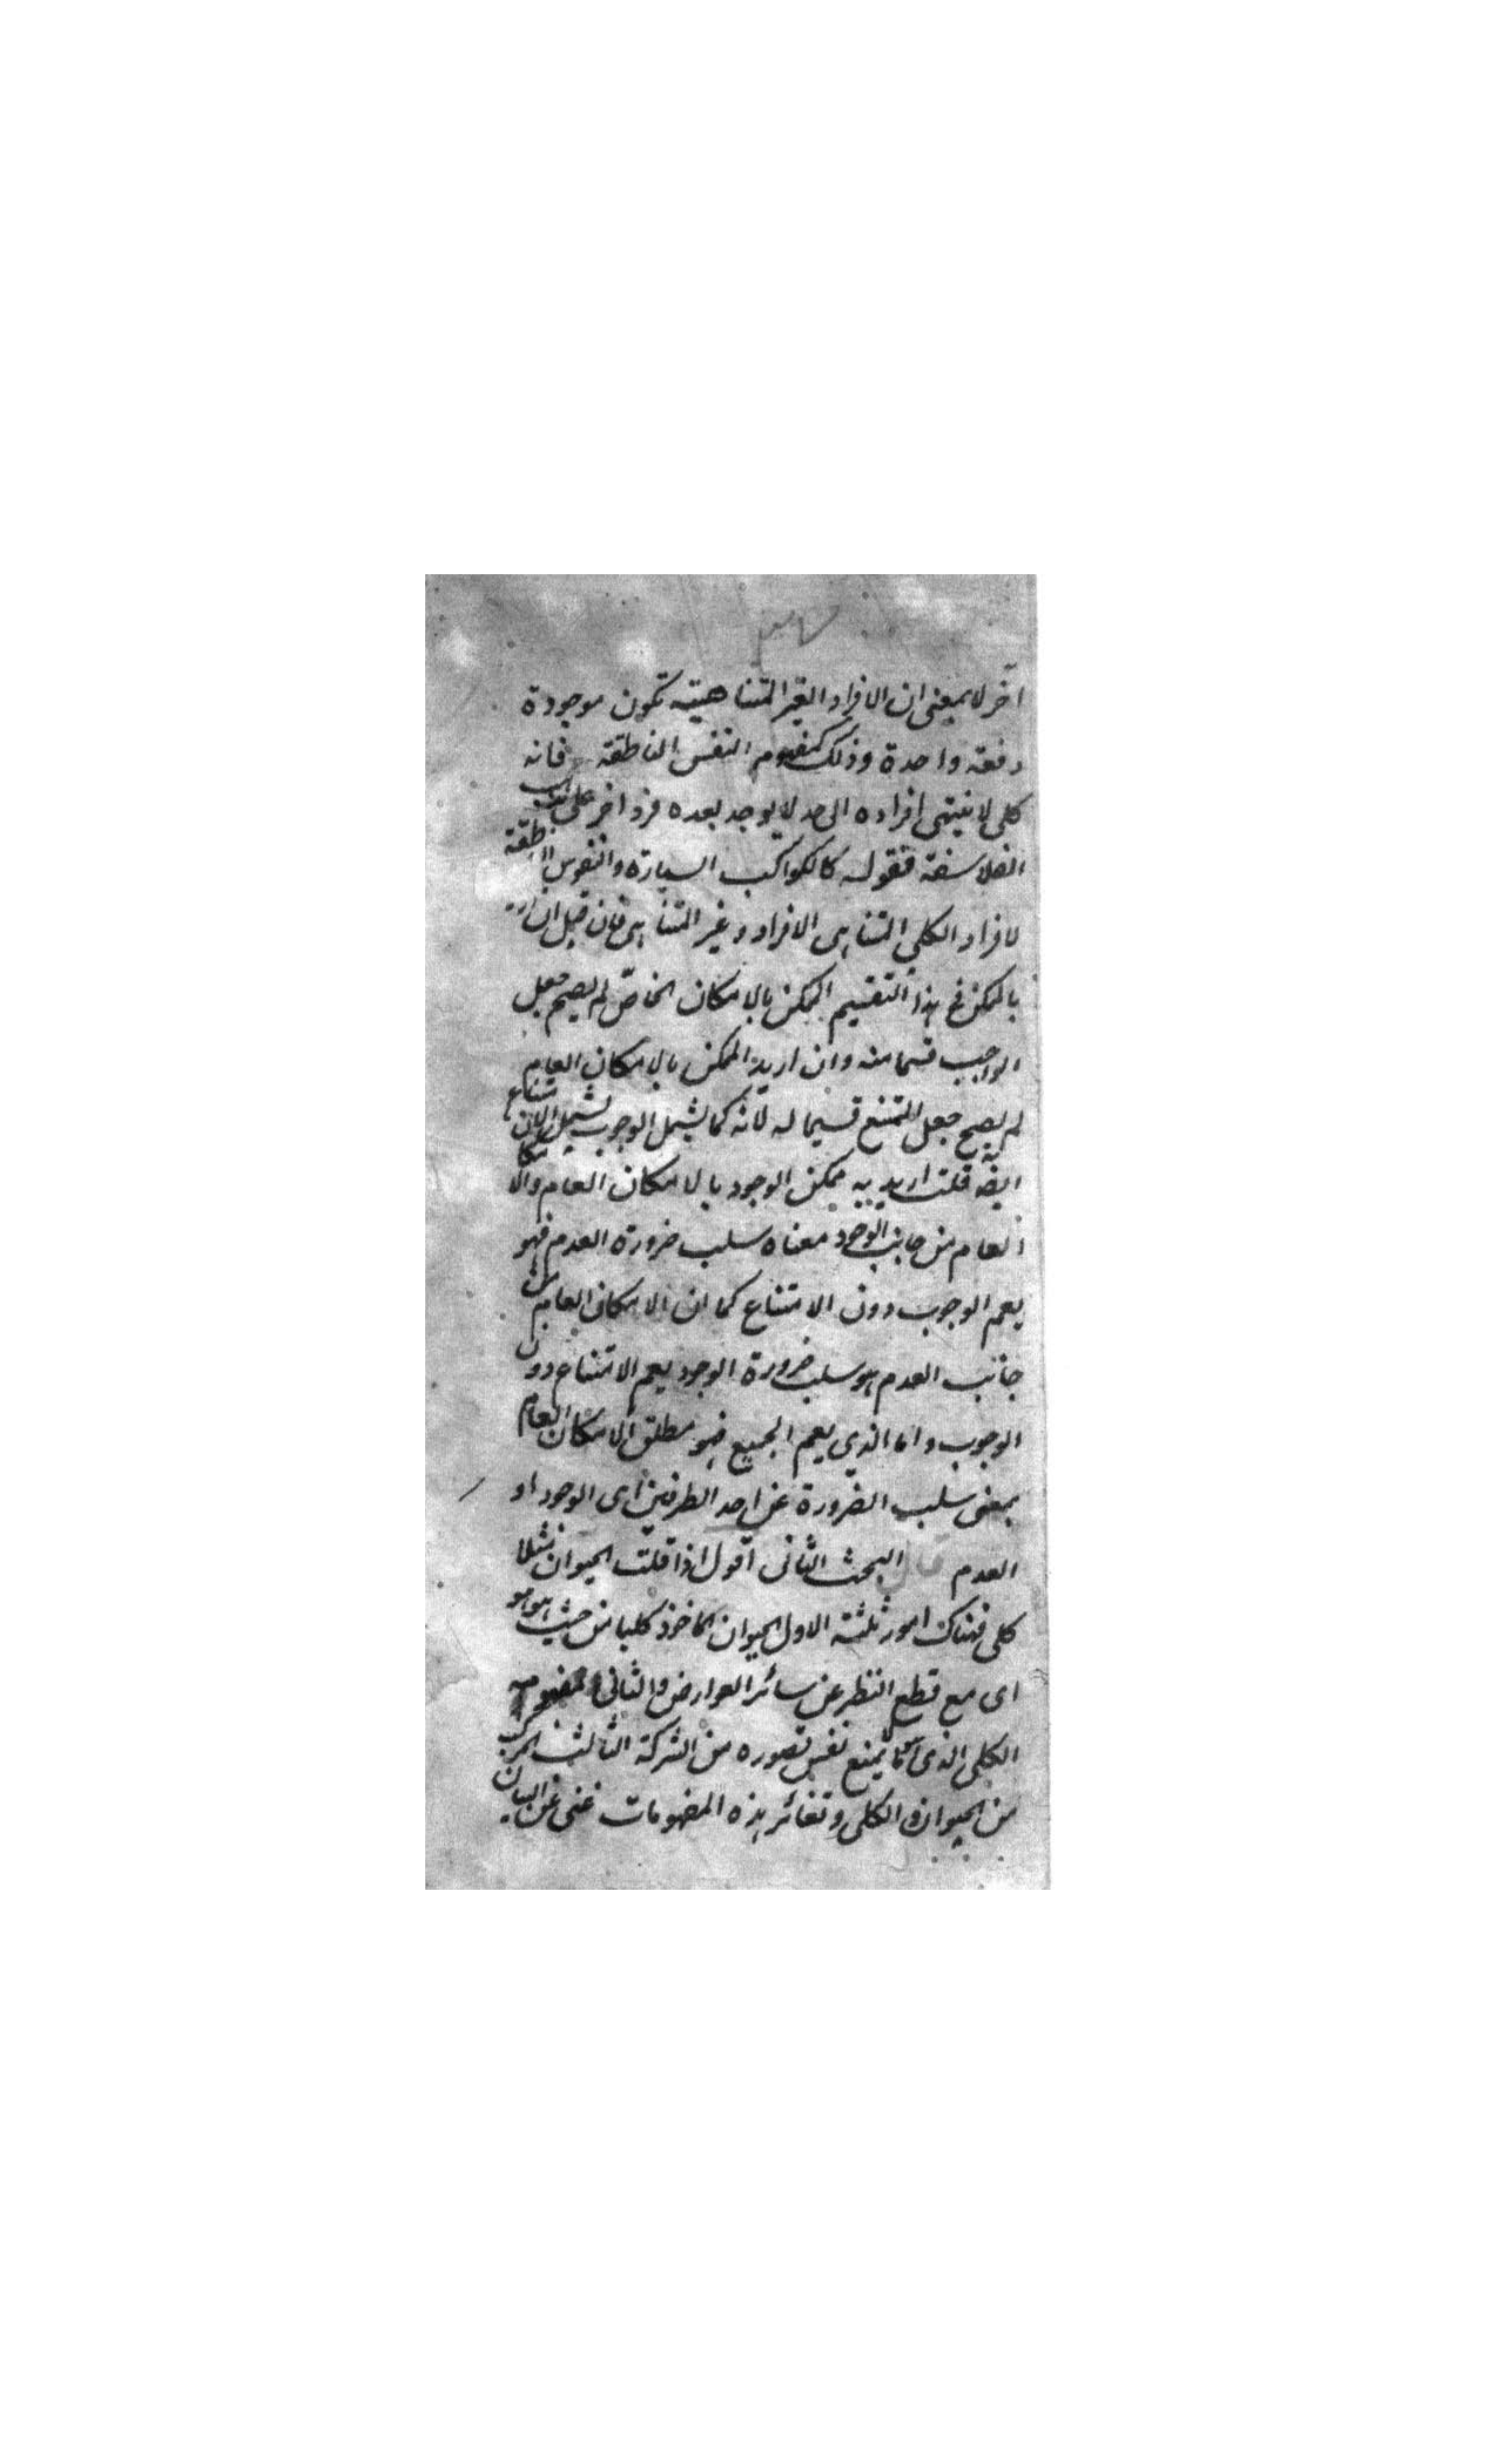 آخر لا بمعنى ان الافراد الغير المتناهية تكون موجودة
دفعة واحدة وذلك كمفهوم النفس الناطقة فانه
كلى لا ينتهى افراده الى حد لا يوجد بعده فرد اخر على مذهب
الفلاسفة فقوله كالكواكب السيارة والنفوس الناطقة
لافراد الكلى المتناهى الافراد وغير المتناهى فان قيل ان اريد
بالممكن فى هذا التقسيم الممكن بالامكان الخاص لم يصح جعل
الواجب قسما منه وان اريد الممكن بالامكان العام
لم يصح جعل الممتنع قسيما له لانه كما يشمل الوجوب يشمل الامتناع
ايضه قلت اريد به ممكن الوجود بالامكان العام والامكان
العام من جانب الوجود معناه سلب ضرورة العدم فهو
يعم الوجوب دون الامتناع كما ان الامكان العام من
جانب العدم هو سلب ضرورة الوجود يعم الامتناع دون
الوجوب واما الذى يعم الجميع فهو مطلق الامكان العام
بمعنى سلب الضرورة عن احد الطرفين اى الوجود او
العدم قال البحث الثانى اقول اذا قلت الحيوان مثلا
كلى فهناك امور ثلثة الاول الحيوان الماخوذ كليا من حيث هو هو
اى مع قطع النظر عن سائر العوارض والثانى مفهوم
الكلى الذى هو ما لا يمنع نفس تصوره من الشركة الثالث المركب
من الحيوان والكلى وتغائر هذه المفهومات غنى عن البيان